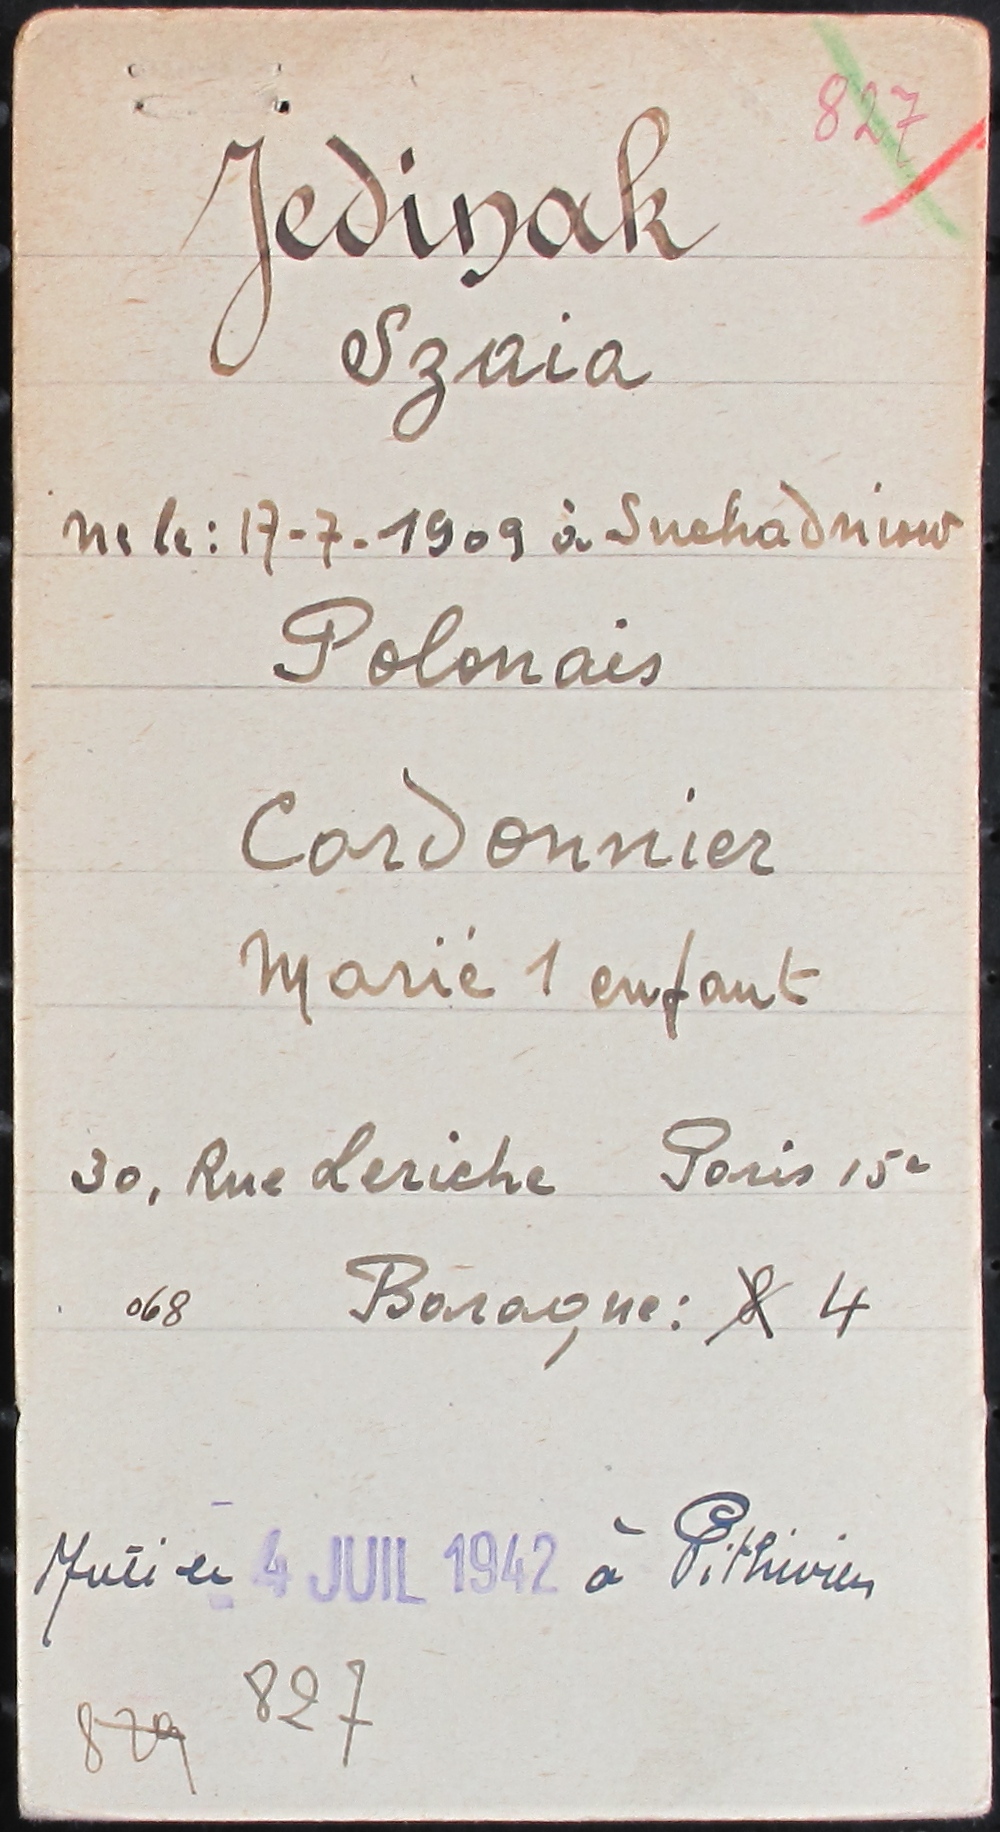 827
Jedinak
Szaia
né le: 17-7-1909 à Suchadniow
Polonais
Cordonnier
Marié 1 enfant
30, Rue Leriche Paris 15e
068 Baraque: 8 4
Muté le 4 JUIL 1942 à Pithiviers
827
829